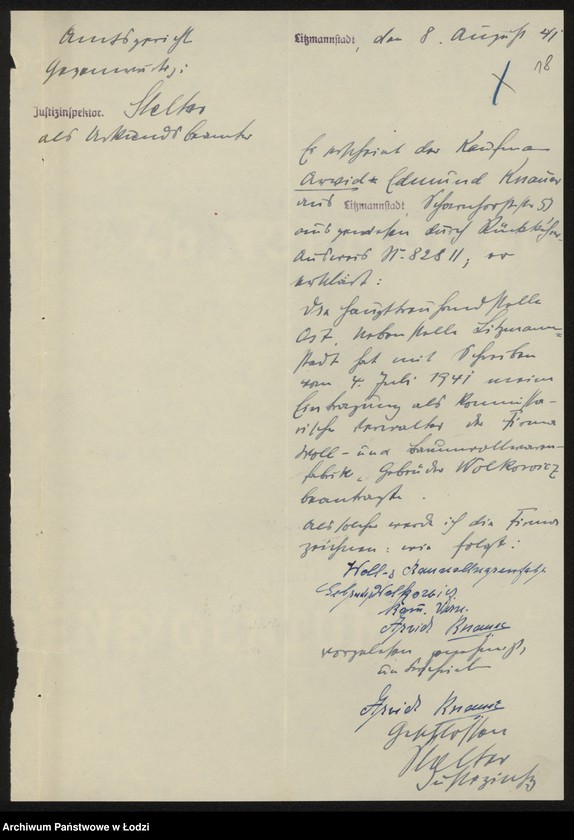 Amtsgericht
Gegenwärtig:
Justizinspektor. Stelter
als Urkundsbeamter
Litzmannstadt, den 8. August 41
18
Es erscheint der Kaufmann
Arwid Edmund Knauer
aus Litzmannstadt, Scharnhorststr. 57
ausgewiesen durch Rückkehrer-
Ausweis Nr. 82811, er
erklärt:
Die Haupttreuhandstelle
Ost, Nebenstelle Litzmann-
stadt hat mit Schreiben
vom 4. Juli 1941 meine
Eintragung als kommissa-
rischer Verwalter der Firma
Woll- und Baumwollwaren-
fabrik „Gebrüder Wolkowicz
beantragt.
Als solcher werde ich die Firma
zeichnen: wie folgt:
Woll-u Baumwollwarenfabr.
Gebrüder Wolkowicz
Kom. Verw.
Arvid Knauer
vorgelesen genehmigt,
unterschrieben
Arvid Knauer
Geschlossen
Stelter
Justizinsp.
Archiwum Państwowe w Łodzi